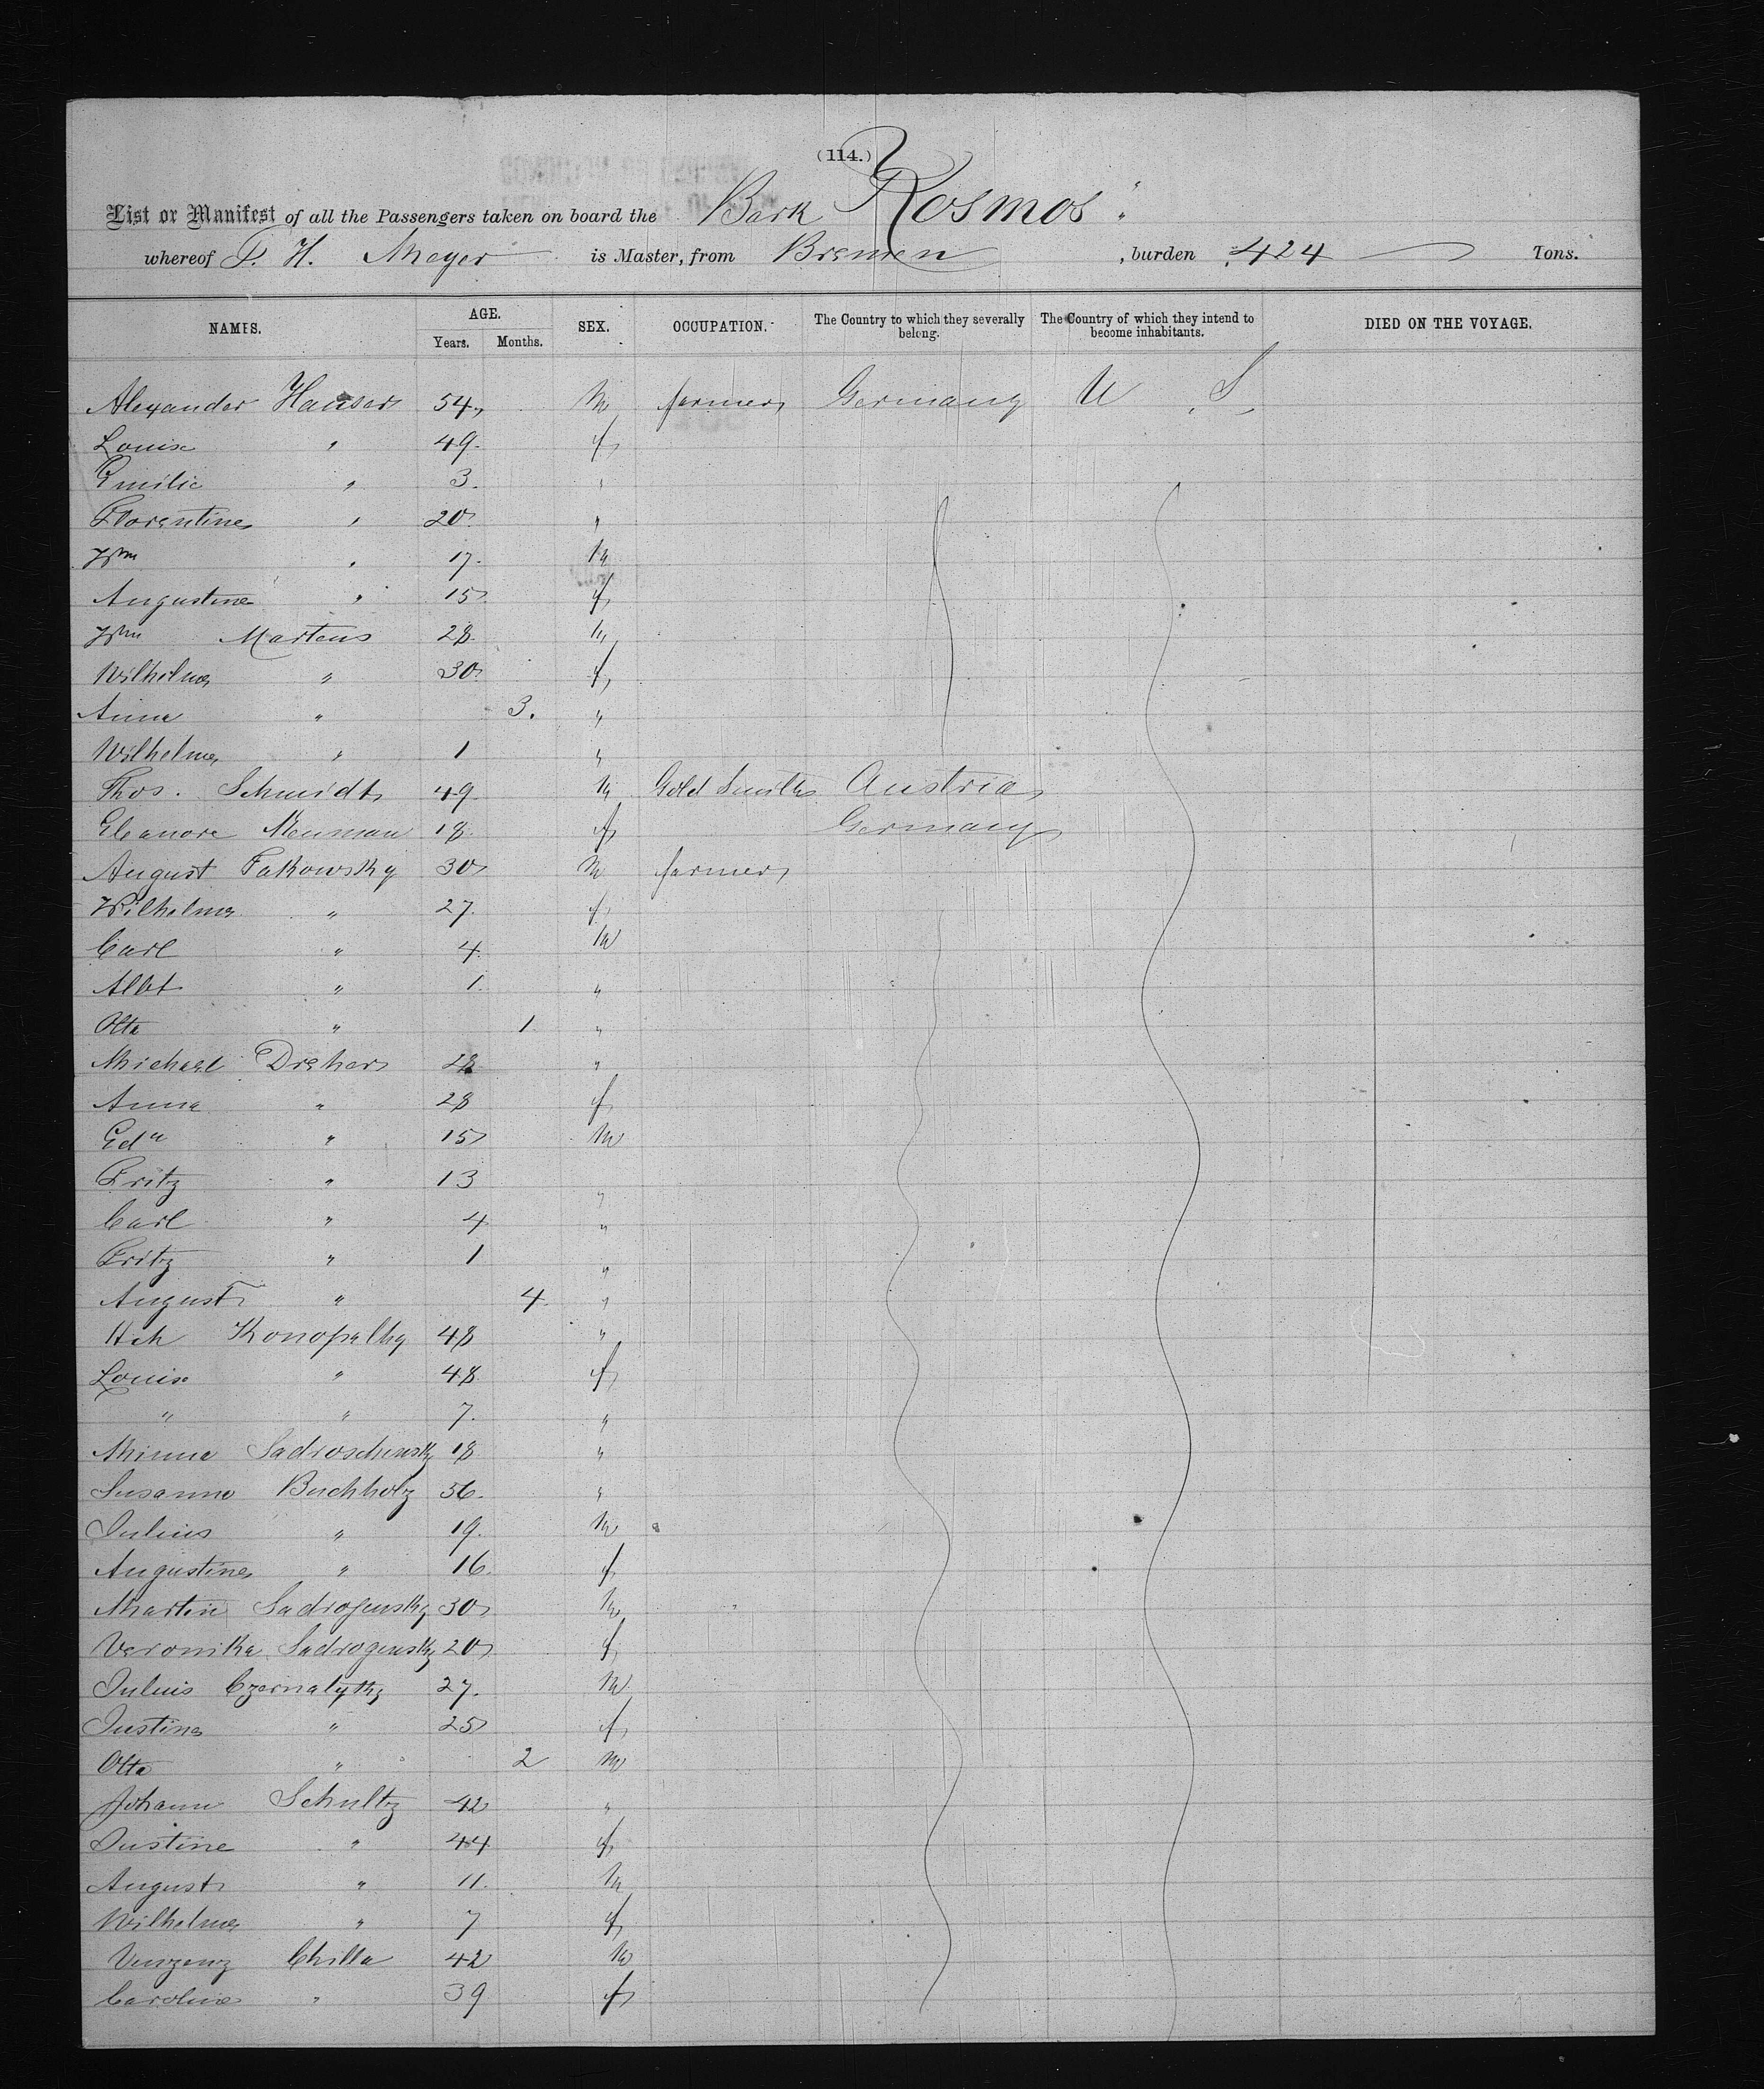 (114.)
List or Manifest of all the Passengers taken on board the Bark Kosmos
whereof P. H. Meyer is Master, from Bremen, burden 424 Tons.
NAMES. AGE. Years. Months. SEX. OCCUPATION. The Country to which they severally belong. The Country of which they intend to become inhabitants. DIED ON THE VOYAGE.
Alexander Hauser 54 m farmer Germany U S
Louise " 49 f
Emilie " 3 "
Florentine " 20 "
Wm " 17 m
Augustine " 15 f
Wm Martens 28 m
Wilhelma " 30 f
Anna " 3 "
Wilhelma " 1 "
Thos. Schmidt 49 m Gold Smith Austria
Eleanore Neuman 18 f Germany
August Fakowsky 30 m farmer
Wilhelma " 27 f
Carl " 4 m
Albt " 1 "
Otto " 1 "
Michael Dreher 28 "
Anna " 28 f
Edu " 15 m
Fritz " 13 "
Carl " 4 "
Fritz " 1 "
August " 4 "
Hch Konopalky 48 "
Louise " 48 f
" " 7 "
Minna Sadroschensky 18 "
Susanna Buchholz 56 "
Julius " 19 m
Augustine " 16 f
Martin Sadrogensky 30 m
Veronika Sadrogensky 20 f
Julius Czernalytky 27 m
Justine " 25 f
Otto " 2 m
Johann Schultz 42 "
Justine " 44 f
August " 11 m
Wilhelma " 7 f
Vinzenz Chilla 42 m
Caroline " 39 f